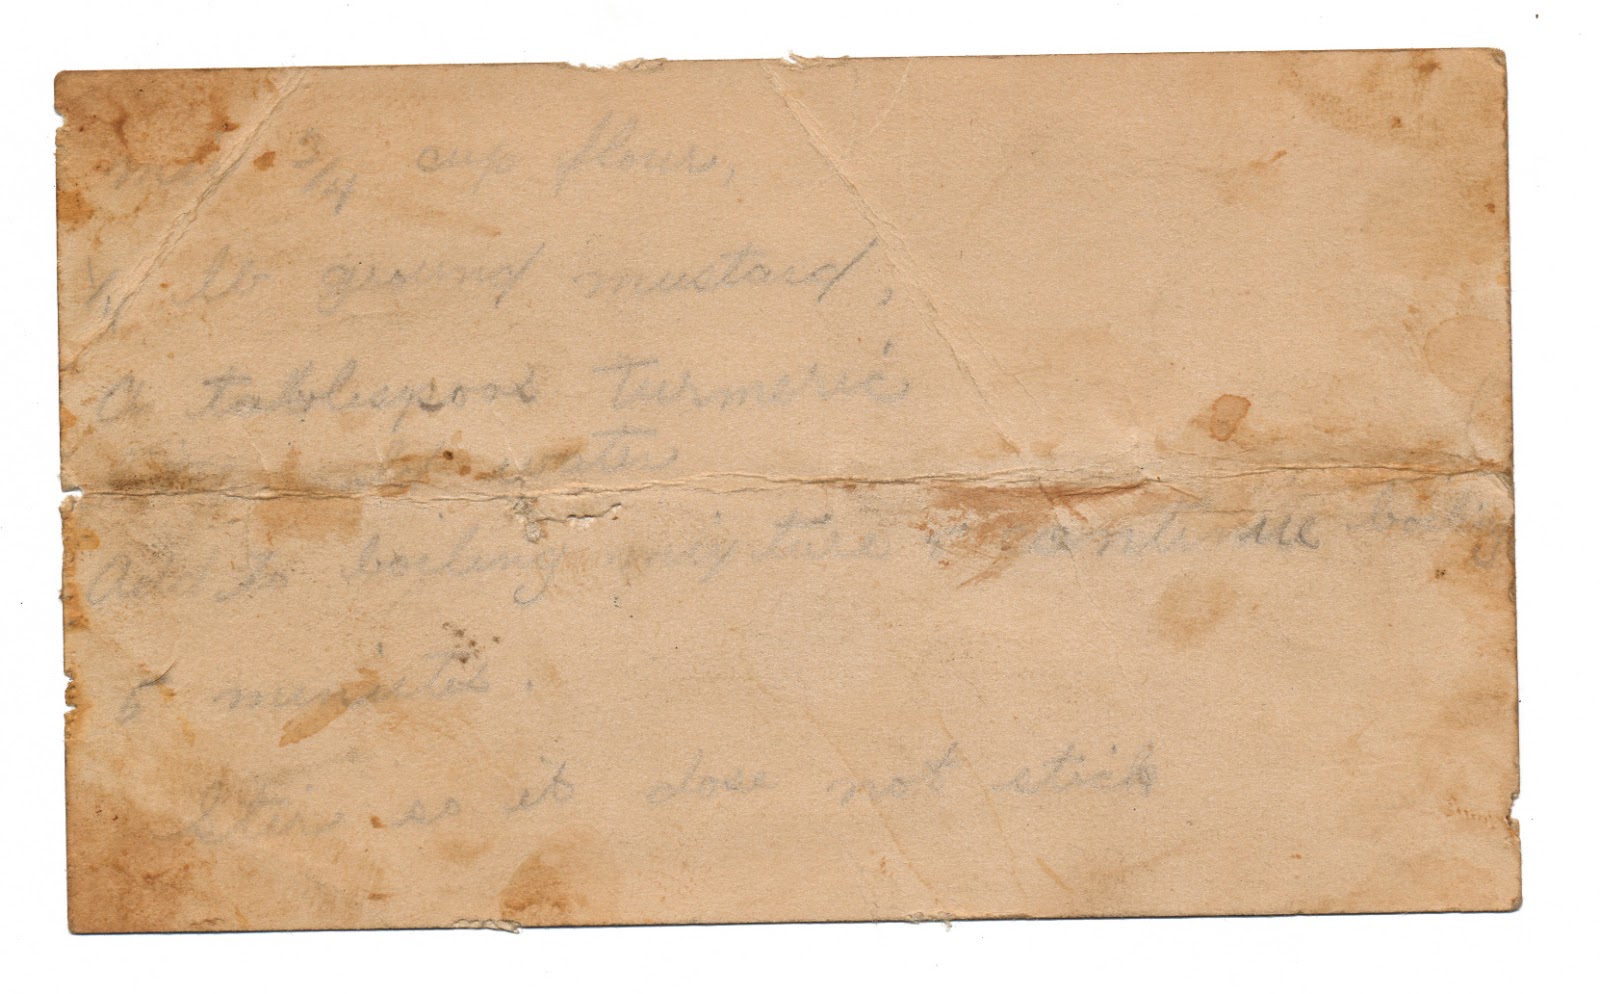 mix 3/4 cup flour,
1/4 lb ground mustard,
a tablespoon turmeric
water
Add to boiling mixture & continue boiling
5 minutes.
Stir so it dose not stick